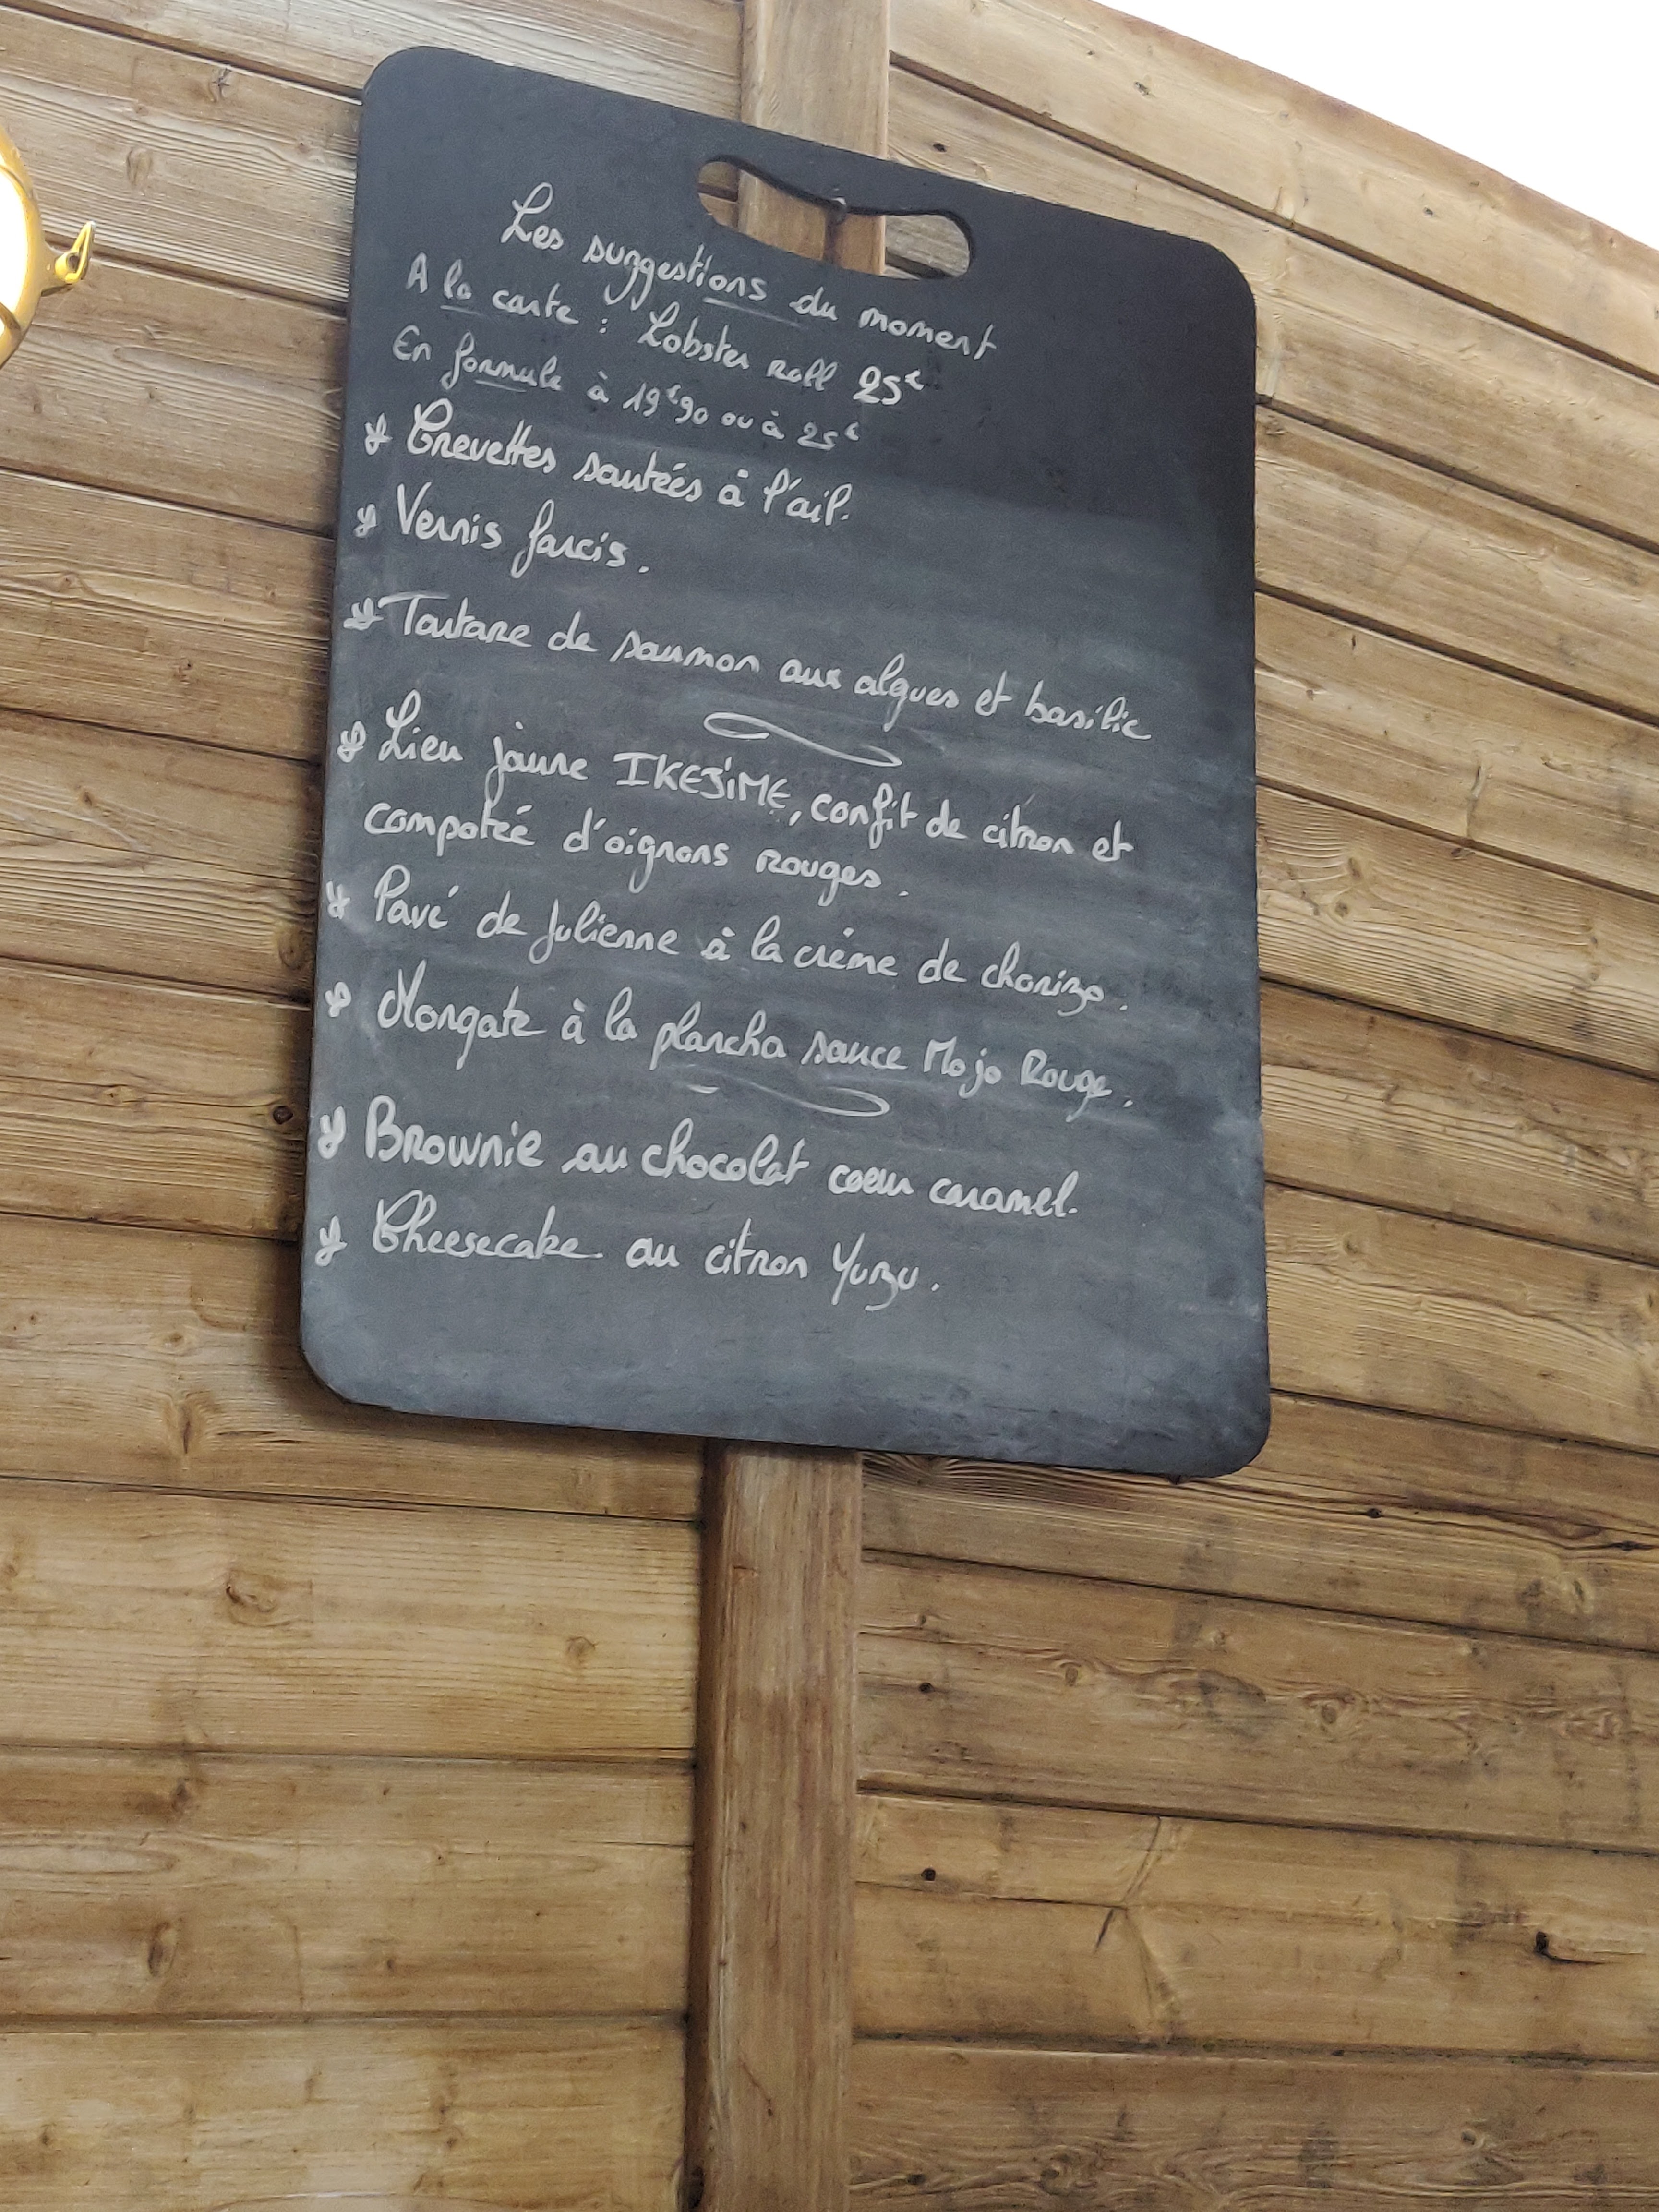 Les suggestions du moment
A la carte : Lobster roll 25€
En formule à 19€90 ou à 25€
Crevettes sautées à l'ail.
Vernis farcis.
Tartare de saumon aux algues et basilic
Lieu jaune IKEJIME, confit de citron et
compotée d'oignons rouges.
Pavé de Julienne à la crème de chorizo.
Morgate à la plancha sauce Mojo Rouge.
Brownie au chocolat coeur caramel.
Cheesecake au citron Yuzu.